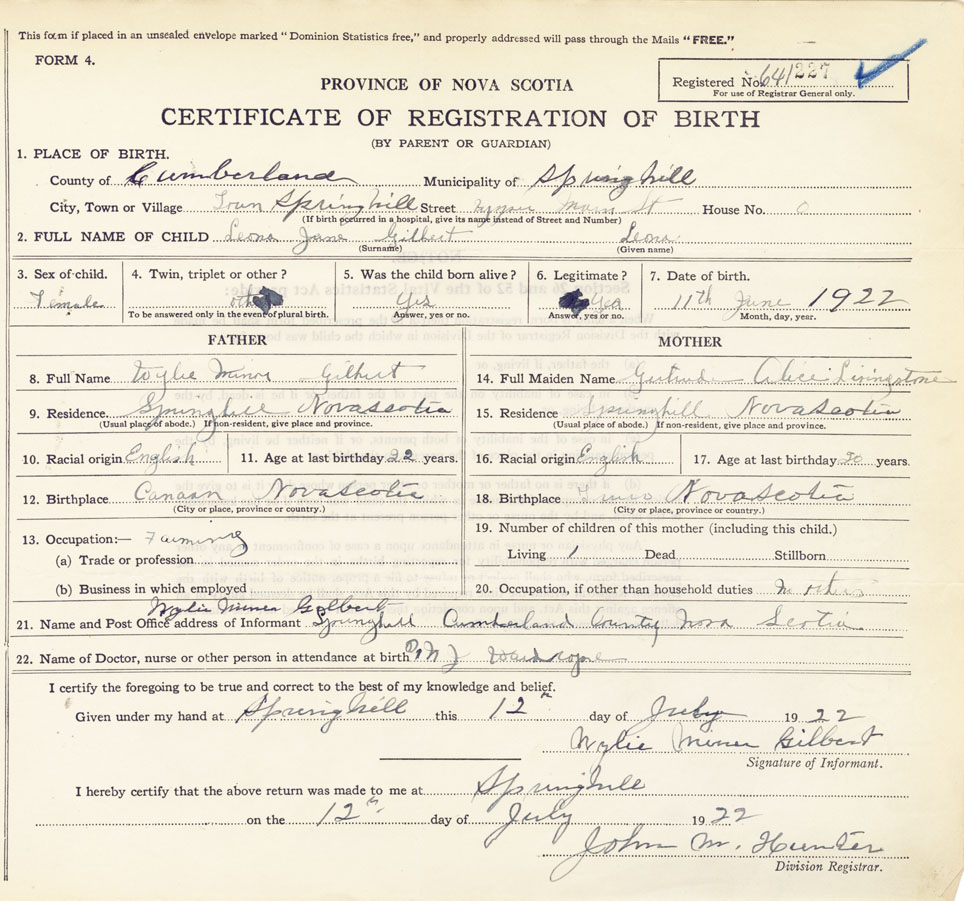 This form if placed in an unsealed envelope marked "Dominion Statistics free," and properly addressed will pass through the Mails "FREE."
FORM 4.
Registered No. 641227
For use of Registrar General only.
PROVINCE OF NOVA SCOTIA
CERTIFICATE OF REGISTRATION OF BIRTH
(BY PARENT OR GUARDIAN)
1. PLACE OF BIRTH.
County of Cumberland Municipality of Springhill
City, Town or Village Town Springhill Street Main St House No. 0
(If birth occurred in a hospital, give its name instead of Street and Number)
2. FULL NAME OF CHILD Leona Jane Gilbert Leona
(Surname) (Given name)
3. Sex of child. 4. Twin, triplet or other? 5. Was the child born alive? 6. Legitimate? 7. Date of birth.
Female Yes Yes 11th June 1922
To be answered only in the event of plural birth. Answer, yes or no. Answer, yes or no. Month, day, year.
FATHER MOTHER
8. Full Name Wylie Minor Gilbert 14. Full Maiden Name Gertrud Alice Livingstone
9. Residence. Springhill Nova Scotia 15. Residence Springhill Nova Scotia
(Usual place of abode.) If non-resident, give place and province. (Usual place of abode.) If non-resident, give place and province.
10. Racial origin English 11. Age at last birthday 22 years. 16. Racial origin English 17. Age at last birthday years.
12. Birthplace Canaan Nova Scotia 18. Birthplace Nova Scotia
(City or place, province or country.) (City or place, province or country.)
13. Occupation:— Farming 19. Number of children of this mother (including this child.)
(a) Trade or profession Living 1 Dead Stillborn
(b) Business in which employed 20. Occupation, if other than household duties
Wylie Miner Gilbert
21. Name and Post Office address of Informant Springhill Cumberland County Nova Scotia
22. Name of Doctor, nurse or other person in attendance at birth Dr
I certify the foregoing to be true and correct to the best of my knowledge and belief.
Given under my hand at Springhill this 12th day of July 1922
Wylie Miner Gilbert
Signature of Informant.
I hereby certify that the above return was made to me at Springhill
on the 12th day of July 1922
John M. Hunter
Division Registrar.